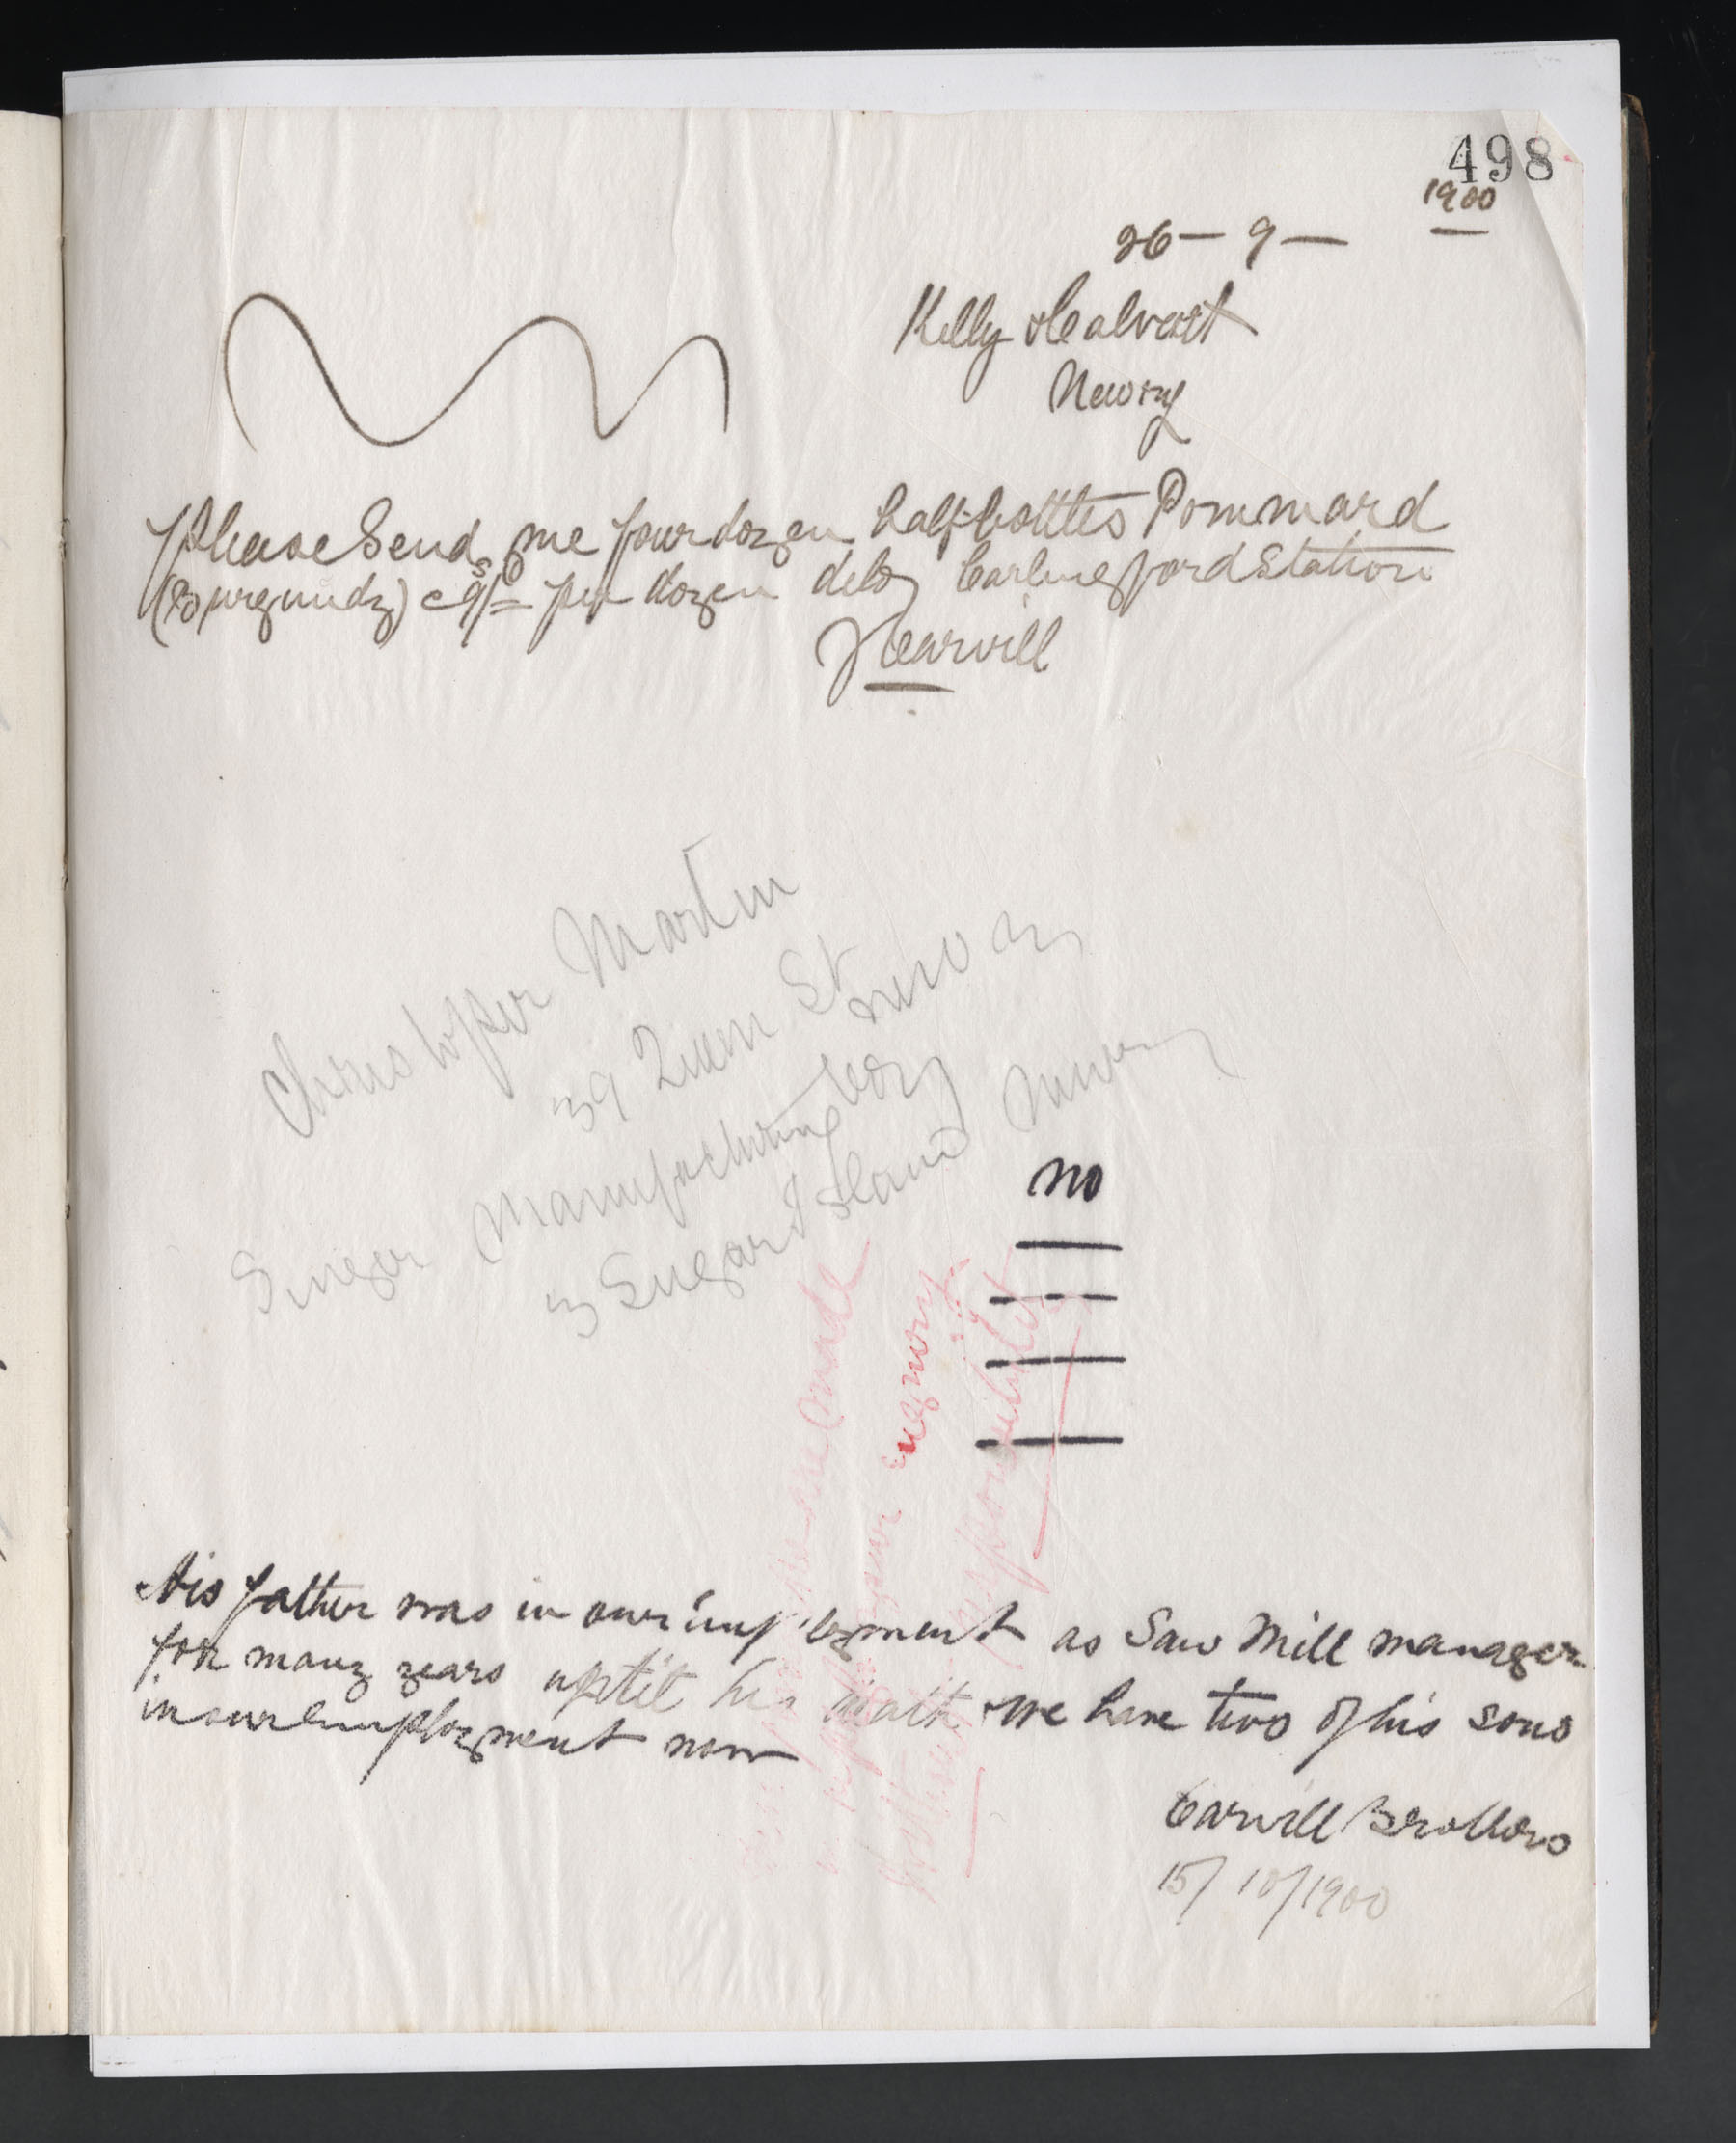 498
1900
26 — 9 —
Kelly & Calvert
Newry
Please Send me four dozen half-bottles Pommard
(Bourgundy) @ 9/= per dozen deld Carlingford Station
J Carvill
Christopher Martin
39 Queen St Newry
Singer Manufacturing Coy
3 Sugar Island Newry
No
made
your inquiry
without responsibility
His father was in our employment as Saw Mill manager
for many years uptil his death & we have two of his sons
in our employment now
Carvill Brothers
15/10/1900